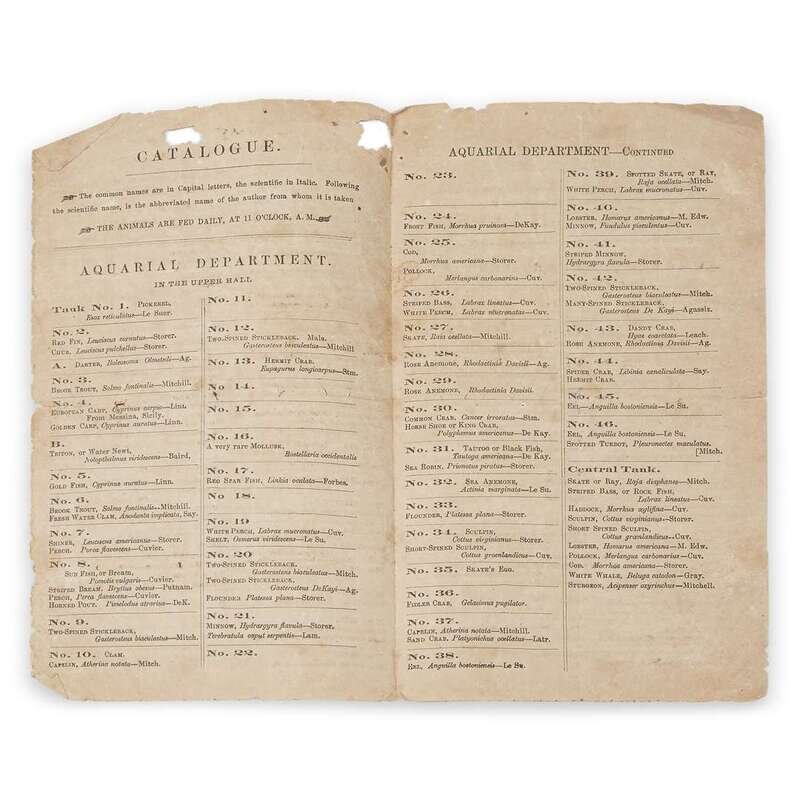 CATALOGUE.
The common names are in Capital letters, the scientific in Italic. Following
the scientific name, is the abbreviated name of the author from whom it is taken
THE ANIMALS ARE FED DAILY, AT 11 O'CLOCK, A. M.
AQUARIAL DEPARTMENT.
IN THE UPPER HALL
Tank No. 1. PICKEREL,
Esox reticulatus—Le Suer.
No. 2.
RED FIN, Leuciscus cornutus—Storer.
CHUB, Leuciscus pulchellus—Storer.
A. DARTER, Boleosoma Olmstedi—Ag.
No. 3.
BROOK TROUT, Salmo fontinalis—Mitchill.
No. 4.
EUROPEAN CARP, Cyprinus carpio—Linn.
From Messina, Sicily.
GOLDEN CARP, Cyprinus auratus—Linn.
B.
TRITON, or Water Newt,
Notopthalmus viridescens—Baird.
No. 5.
GOLD FISH, Cyprinus auratus—Linn.
No. 6.
BROOK TROUT, Salmo fontinalis—Mitchill.
FRESH WATER CLAM, Anodonta implicata, Say.
No. 7.
SHINER, Leuciscus americanus—Storer.
PERCH. Perca flavescens—Cuvier.
No. 8.
SUN FISH, or Bream,
Pomotis vulgaris—Cuvier.
STRIPED BREAM, Bryttus obesus—Putnam.
PERCH, Perca flavescens—Cuvier.
HORNED POUT, Pimelodus atrarius—DeK.
No. 9.
TWO-SPINED STICKLEBACK,
Gasterosteus biaculeatus—Mitch.
No. 10. CLAM.
CAPELIN, Atherina notata—Mitch.
No. 11.
No. 12.
TWO-SPINED STICKLEBACK. Male.
Gasterosteus biaculeatus—Mitchill
No. 13. HERMIT CRAB.
Eupagurus longicarpus—Stm.
No. 14.
No. 15.
No. 16.
A very rare MOLLUSK,
Rostellaria occidentalis
No. 17.
RED STAR FISH, Linkia oculata—Forbes.
No 18.
No. 19
WHITE PERCH, Labrax mucronatus—Cuv.
SMELT, Osmerus viridescens—Le Su.
No. 20
TWO-SPINED STICKLEBACK.
Gasterosteus biaculeatus—Mitch.
TWO-SPINED STICKLEBACK,
Gasterosteus DeKayi—Ag.
FLOUNDER Platessa plana—Storer.
No. 21.
MINNOW, Hydrargyra flavula—Storer.
Terebratula caput serpentis—Lam.
No. 22.
AQUARIAL DEPARTMENT—CONTINUED
No. 23.
No. 24.
FROST FISH, Morrhua pruinosa—DeKay.
No. 25.
COD,
Morrhua americana—Storer.
POLLOCK,
Merlangus carbonarius—Cuv.
No. 26.
STRIPED BASS, Labrax lineatus—Cuv.
WHITE PERCH, Labrax mucronatus—Cuv.
No. 27.
SKATE, Raia ocellata—Mitchill.
No. 28.
ROSE ANEMONE, Rhodactinia Davisii—Ag.
No. 29.
ROSE ANEMONE, Rhodactinia Davisii.
No. 30.
COMMON CRAB. Cancer irroratus—Stm.
HORSE SHOE OR KING CRAB,
Polyphemus americanus—De Kay.
No. 31. TAUTOG or Black Fish,
Tautoga americana—De Kay.
SEA ROBIN, Prionotus pilatus—Storer.
No. 32. SEA ANEMONE,
Actinia marginata—Le Su.
No. 33.
FLOUNDER, Platessa plana—Storer.
No. 34. SCULPIN,
Cottus virginianus—Storer.
SHORT-SPINED SCULPIN,
Cottus groenlandicus—Cuv.
No. 35. SKATE'S EGG.
No. 36.
FIDLER CRAB, Gelasimus pugilator.
No. 37.
CAPELIN, Atherina notata—Mitchill.
SAND CRAB. Platyonichus ocellatus—Latr.
No. 38.
EEL, Anguilla bostoniensis—Le Su.
No. 39. SPOTTED SKATE, OR RAY,
Raja ocellata—Mitch.
WHITE PERCH, Labrax mucronatus—Cuv.
No. 40.
LOBSTER, Homarus americanus—M. Edw.
MINNOW, Fundulus pisculentus—Cuv.
No. 41.
STRIPED MINNOW,
Hydrargyra flavula—Storer.
No. 42.
TWO-SPINED STICKLEBACK,
Gasterosteus biaculeatus—Mitch.
MANY-SPINED STICKLEBACK,
Gasterosteus De Kayi—Agassiz.
No. 43. DANDY CRAB,
Hyas coarctata—Leach.
ROSE ANEMONE, Rhodactinia Davisii—Ag.
No. 44.
SPIDER CRAB, Libinia canaliculata—Say.
HERMIT CRAB.
No. 45.
EEL—Anguilla bostoniensis—Le Su.
No. 46.
EEL, Anguilla bostoniensis—Le Su.
SPOTTED TURBOT, Pleuronectes maculatus.
[Mitch.
Central Tank.
SKATE or RAY, Raja diaphanes—Mitch.
STRIPED BASS, or ROCK FISH,
Labrax lineatus—Cuv.
HADDOCK, Morrhua æglifinus—Cuv.
SCULPIN, Cottus virginianus—Storer.
SHORT SPINED SCULPIN,
Cottus grœnlandicus—Cuv.
LOBSTER, Homarus americanus—M. Edw.
POLLOCK, Merlangus carbonarius—Cuv.
COD. Morrhua americana—Storer.
WHITE WHALE, Beluga catodon—Gray.
STURGEON, Acipenser oxyrinchus—Mitchell.